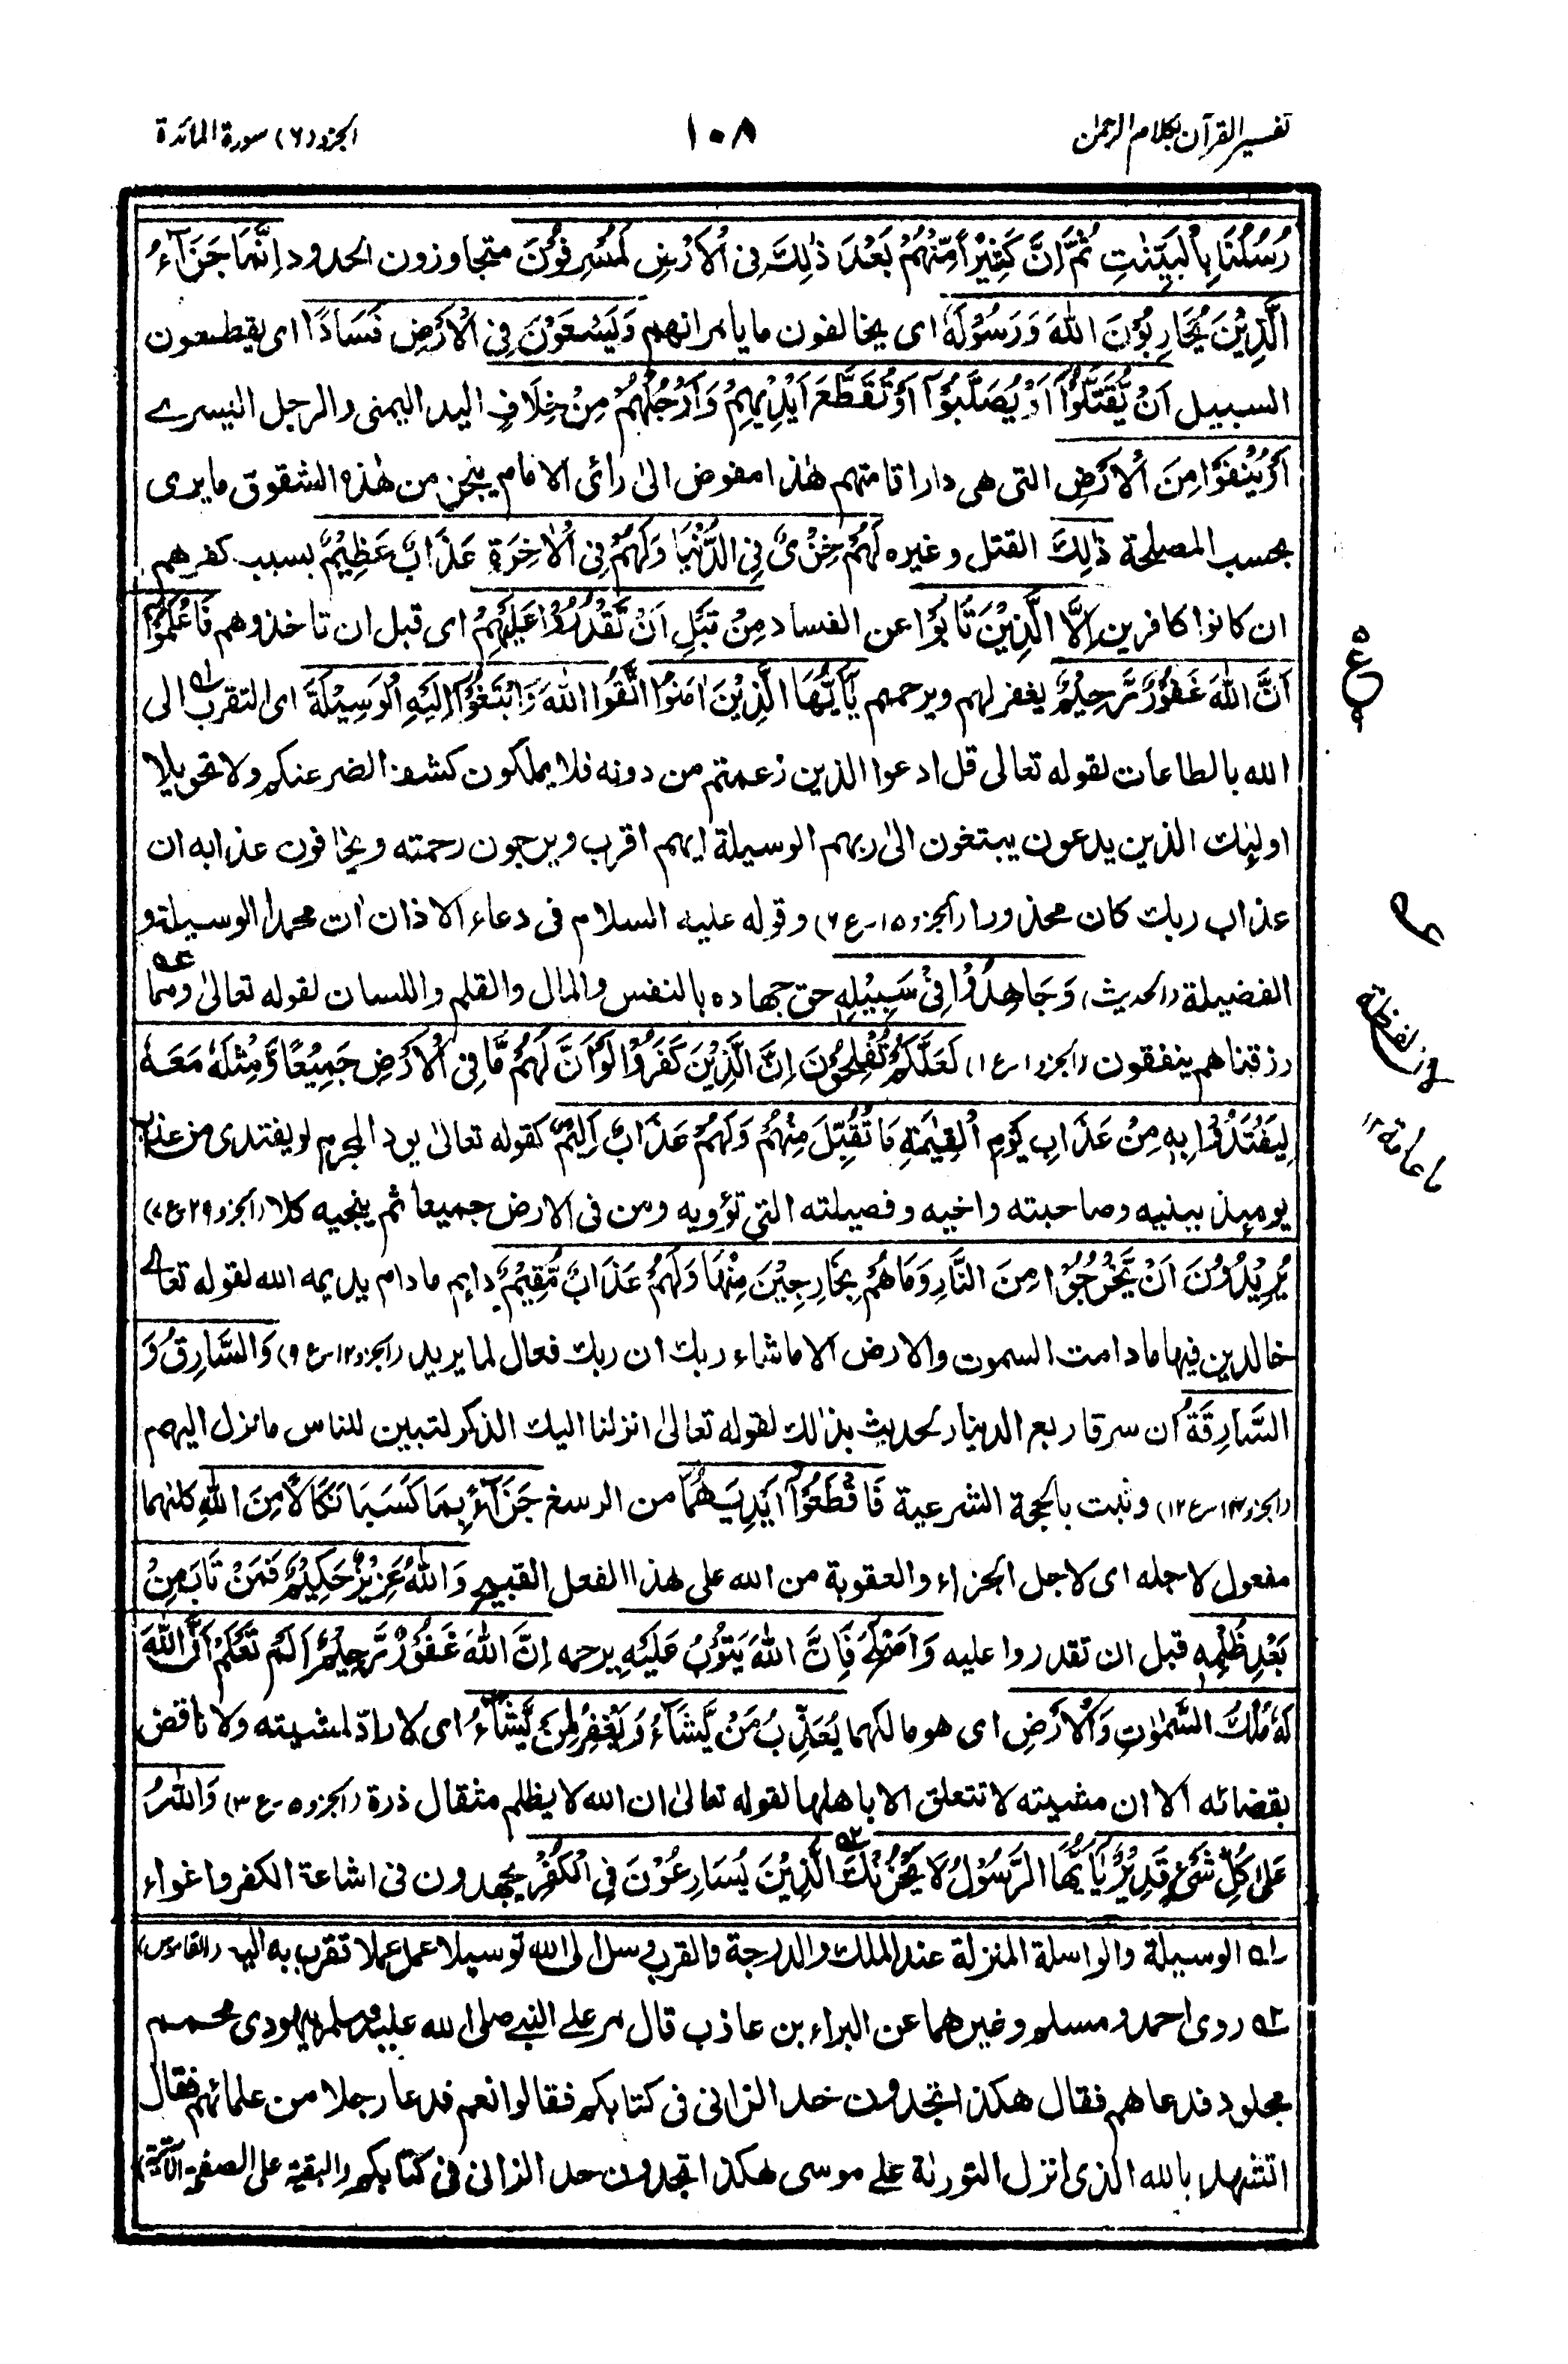 تفسير القرآن بكلام الرحمن
١٠٨
الجزء (٦) سورة المائدة
رُسُلُنَا بِالْبَيِّنٰتِ ثُمَّ اِنَّ كَثِيْرًا مِّنْهُمْ بَعْدَ ذٰلِكَ فِى الْاَرْضِ لَمُسْرِفُوْنَ متجاوزون الحدود اِنَّمَا جَزَآءُ
الَّذِيْنَ يُحَارِبُوْنَ اللّٰهَ وَرَسُوْلَهٗ اى يخالفون ما يأمرانهم وَيَسْعَوْنَ فِى الْاَرْضِ فَسَادًا اى يقطعون
السبيل اَنْ يُّقَتَّلُوْٓا اَوْ يُصَلَّبُوْٓا اَوْ تُقَطَّعَ اَيْدِيْهِمْ وَاَرْجُلُهُمْ مِنْ خِلَافٍ اليد اليمنى والرجل اليسرے
اَوْ يُنْفَوْا مِنَ الْاَرْضِ التى هى دار اقامتهم هٰذا مفوض الىٰ رائى الامام ينجز من هٰذه الشقوق ما يرى
بحسب المصلحة ذٰلِكَ القتل وغيره لَهُمْ خِزْىٌ فِى الدُّنْيَا وَلَهُمْ فِى الْاٰخِرَةِ عَذَابٌ عَظِيْمٌ بسبب كفرهم
ان كانوا كافرين اِلَّا الَّذِيْنَ تَابُوْا عن الفساد مِنْ قَبْلِ اَنْ تَقْدِرُوْا عَلَيْهِمْ اى قبل ان تاخذوهم فَاعْلَمُوْٓا
اَنَّ اللّٰهَ غَفُوْرٌ رَّحِيْمٌ يغفر لهم ويرحمهم يٰٓاَيُّهَا الَّذِيْنَ اٰمَنُوا اتَّقُوا اللّٰهَ وَابْتَغُوْٓا اِلَيْهِ الْوَسِيْلَةَ ١ه اى التقرب الى
الله بالطاعات لقوله تعالى قل ادعوا الذين زعمتم من دونه فلا يملكون كشف الضر عنكم ولا تحويلا
اولئك الذين يدعون يبتغون الىٰ ربهم الوسيلة ايهم اقرب ويرجون رحمته ويخافون عذابه ان
عذاب ربك كان محذورا (الجزو ١٥- ع ٦) وقوله عليه السلام فى دعاء الاذان اٰت محمدا الوسيلة و
الفضيلة (الحديث) وَجَاهِدُوْا فِىْ سَبِيْلِهٖ حق جهاده بالنفس والمال والقلم واللسان لقوله تعالىٰ ومما
رزقناهم ينفقون (الجزو ١- ع ١) لَعَلَّكُمْ تُفْلِحُوْنَ اِنَّ الَّذِيْنَ كَفَرُوْا لَوْ اَنَّ لَهُمْ مَّا فِى الْاَرْضِ جَمِيْعًا وَّمِثْلَهٗ مَعَهٗ
لِيَفْتَدُوْا بِهٖ مِنْ عَذَابِ يَوْمِ الْقِيٰمَةِ مَا تُقُبِّلَ مِنْهُمْ وَلَهُمْ عَذَابٌ اَلِيْمٌ كقوله تعالىٰ يود المجرم لو يفتدى من عذاب
يومئذ ببنيه وصاحبته واخيه وفصيلته التى تؤويه ومن فى الارض جميعا ثم ينجيه كلا (الجزو ٢٩- ع ٧)
يُرِيْدُوْنَ اَنْ يَّخْرُجُوْا مِنَ النَّارِ وَمَا هُمْ بِخَارِجِيْنَ مِنْهَا وَلَهُمْ عَذَابٌ مُّقِيْمٌ دائم ما دام يديمه الله لقوله تعالے
خالدين فيها ما دامت السموت والارض الا ما شاء ربك ان ربك فعال لما يريد (الجزو ١٢- ع ٩) وَالسَّارِقُ وَ
السَّارِقَةُ ان سرقا ربع الدينار لحديث بذٰلك لقوله تعالىٰ انزلنا اليك الذكر لتبين للناس ما نزل اليهم
(الجزو ١٤- ع ١٢) وثبت بالحجة الشرعية فَاقْطَعُوْٓا اَيْدِيَهُمَا من الرسغ جَزَآءًۢ بِمَا كَسَبَا نَكَالًا مِّنَ اللّٰهِ كلتهما
مفعول لاجله اى لاجل الجزاء والعقوبة من الله على هٰذا الفعل القبيح وَاللّٰهُ عَزِيْزٌ حَكِيْمٌ فَمَنْ تَابَ مِنْ
بَعْدِ ظُلْمِهٖ قبل ان تقدروا عليه وَاَصْلَحَ فَاِنَّ اللّٰهَ يَتُوْبُ عَلَيْهِ يرحمه اِنَّ اللّٰهَ غَفُوْرٌ رَّحِيْمٌ اَلَمْ تَعْلَمْ اَنَّ اللّٰهَ
لَهٗ مُلْكُ السَّمٰوٰتِ وَالْاَرْضِ اى هو مالكهما يُعَذِّبُ مَنْ يَّشَآءُ وَيَغْفِرُ لِمَنْ يَّشَآءُ اى لا رادّ لمشيته ولا ناقض
بقضائه الا ان مشيته لا تتعلق الا باهلها لقوله تعالىٰ ان الله لا يظلم مثقال ذرة (الجزو ٥- ع ٣) وَاللّٰهُ
عَلٰى كُلِّ شَىْءٍ قَدِيْرٌ يٰٓاَيُّهَا الرَّسُوْلُ لَا يَحْزُنْكَ ٢ه الَّذِيْنَ يُسَارِعُوْنَ فِى الْكُفْرِ يجهدون فى اشاعة الكفر واغواء
١ه الوسيلة والواسلة المنزلة عند الملك والدرجة والقرب وسل الى الله توسيلا عمل عملا تقرب به اليه (القاموس)
٢ه روى احمد ومسلم وغيرهما عن البراء بن عاذب قال مر علے النبے صلى الله عليه وسلم بيهودى محمم
مجلود فدعاهم فقال هكذا تجدون حد الزانى فى كتابكم فقالوا نعم فدعا رجلا من علمائهم فقال
اتشهد بالله الذى انزل التورٰة علے موسى هكذا تجدون حد الزانى فى كتابكم (البقية على الصفحة الآتية)